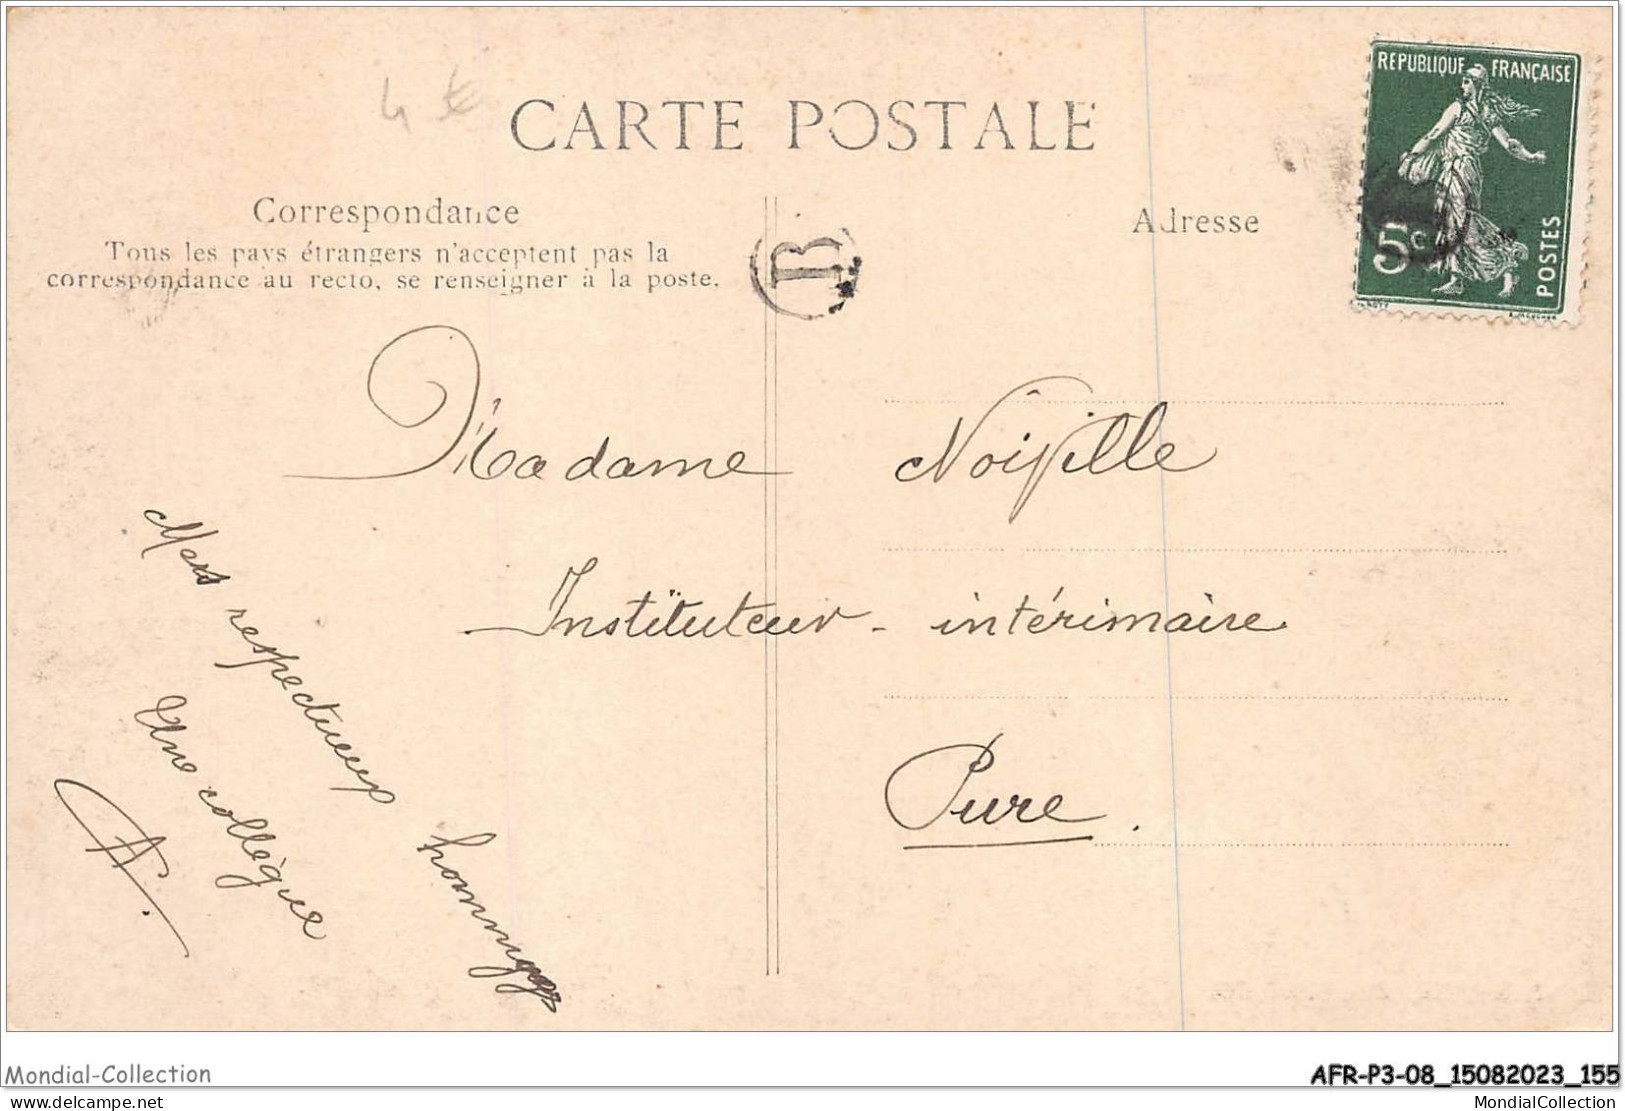 4 €
CARTE POSTALE
REPUBLIQUE FRANÇAISE
5c
POSTES
Correspondance
Tous les pays étrangers n'acceptent pas la
correspondance au recto, se renseigner à la poste.
B
Adresse
Madame
Instituteur - intérimaire
Pure.
Mes respectueux hommages
Une collègue
A.
Mondial-Collection
AFR-P3-08_15082023_155
delcampe.net
MondialCollection